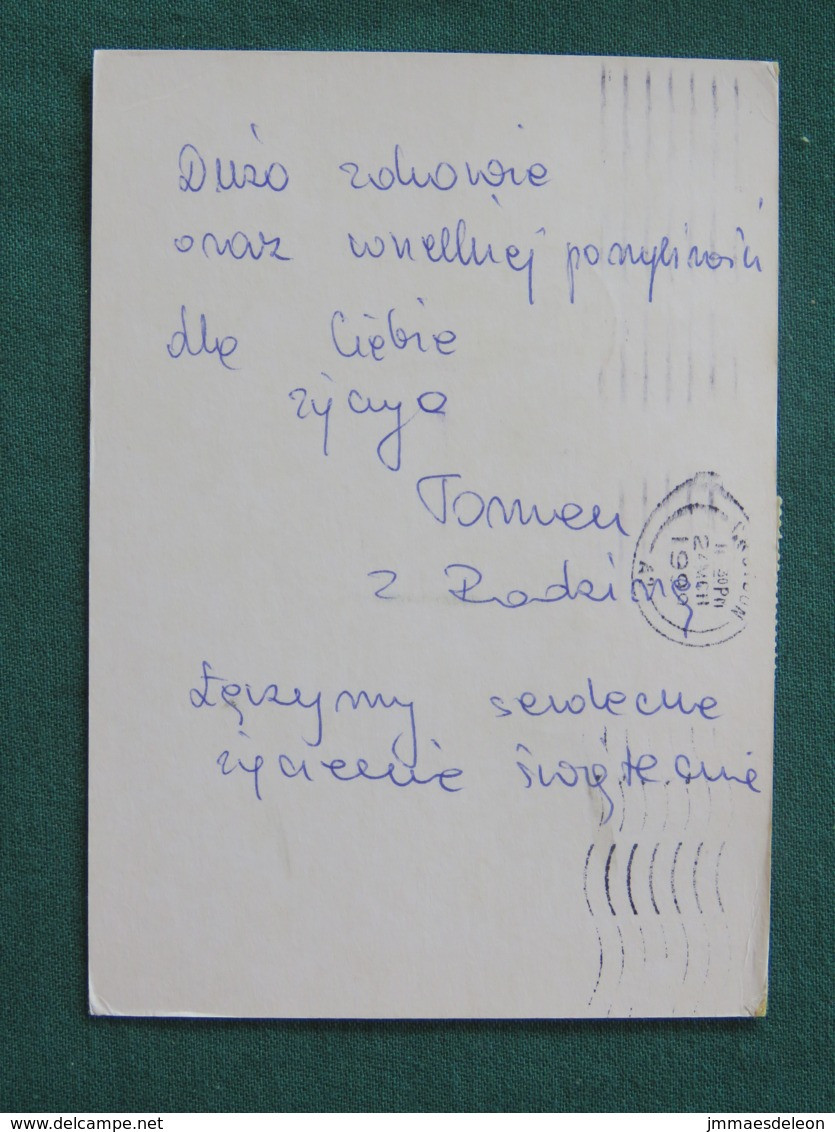 Dużo zdrowia
oraz wszelkiej pomyślności
dla Ciebie
życzą
z Rodziną
Łączymy serdeczne
życzenia świąteczne
11 30 PM
1999
www.delcampe.net
jmmaesdeleon